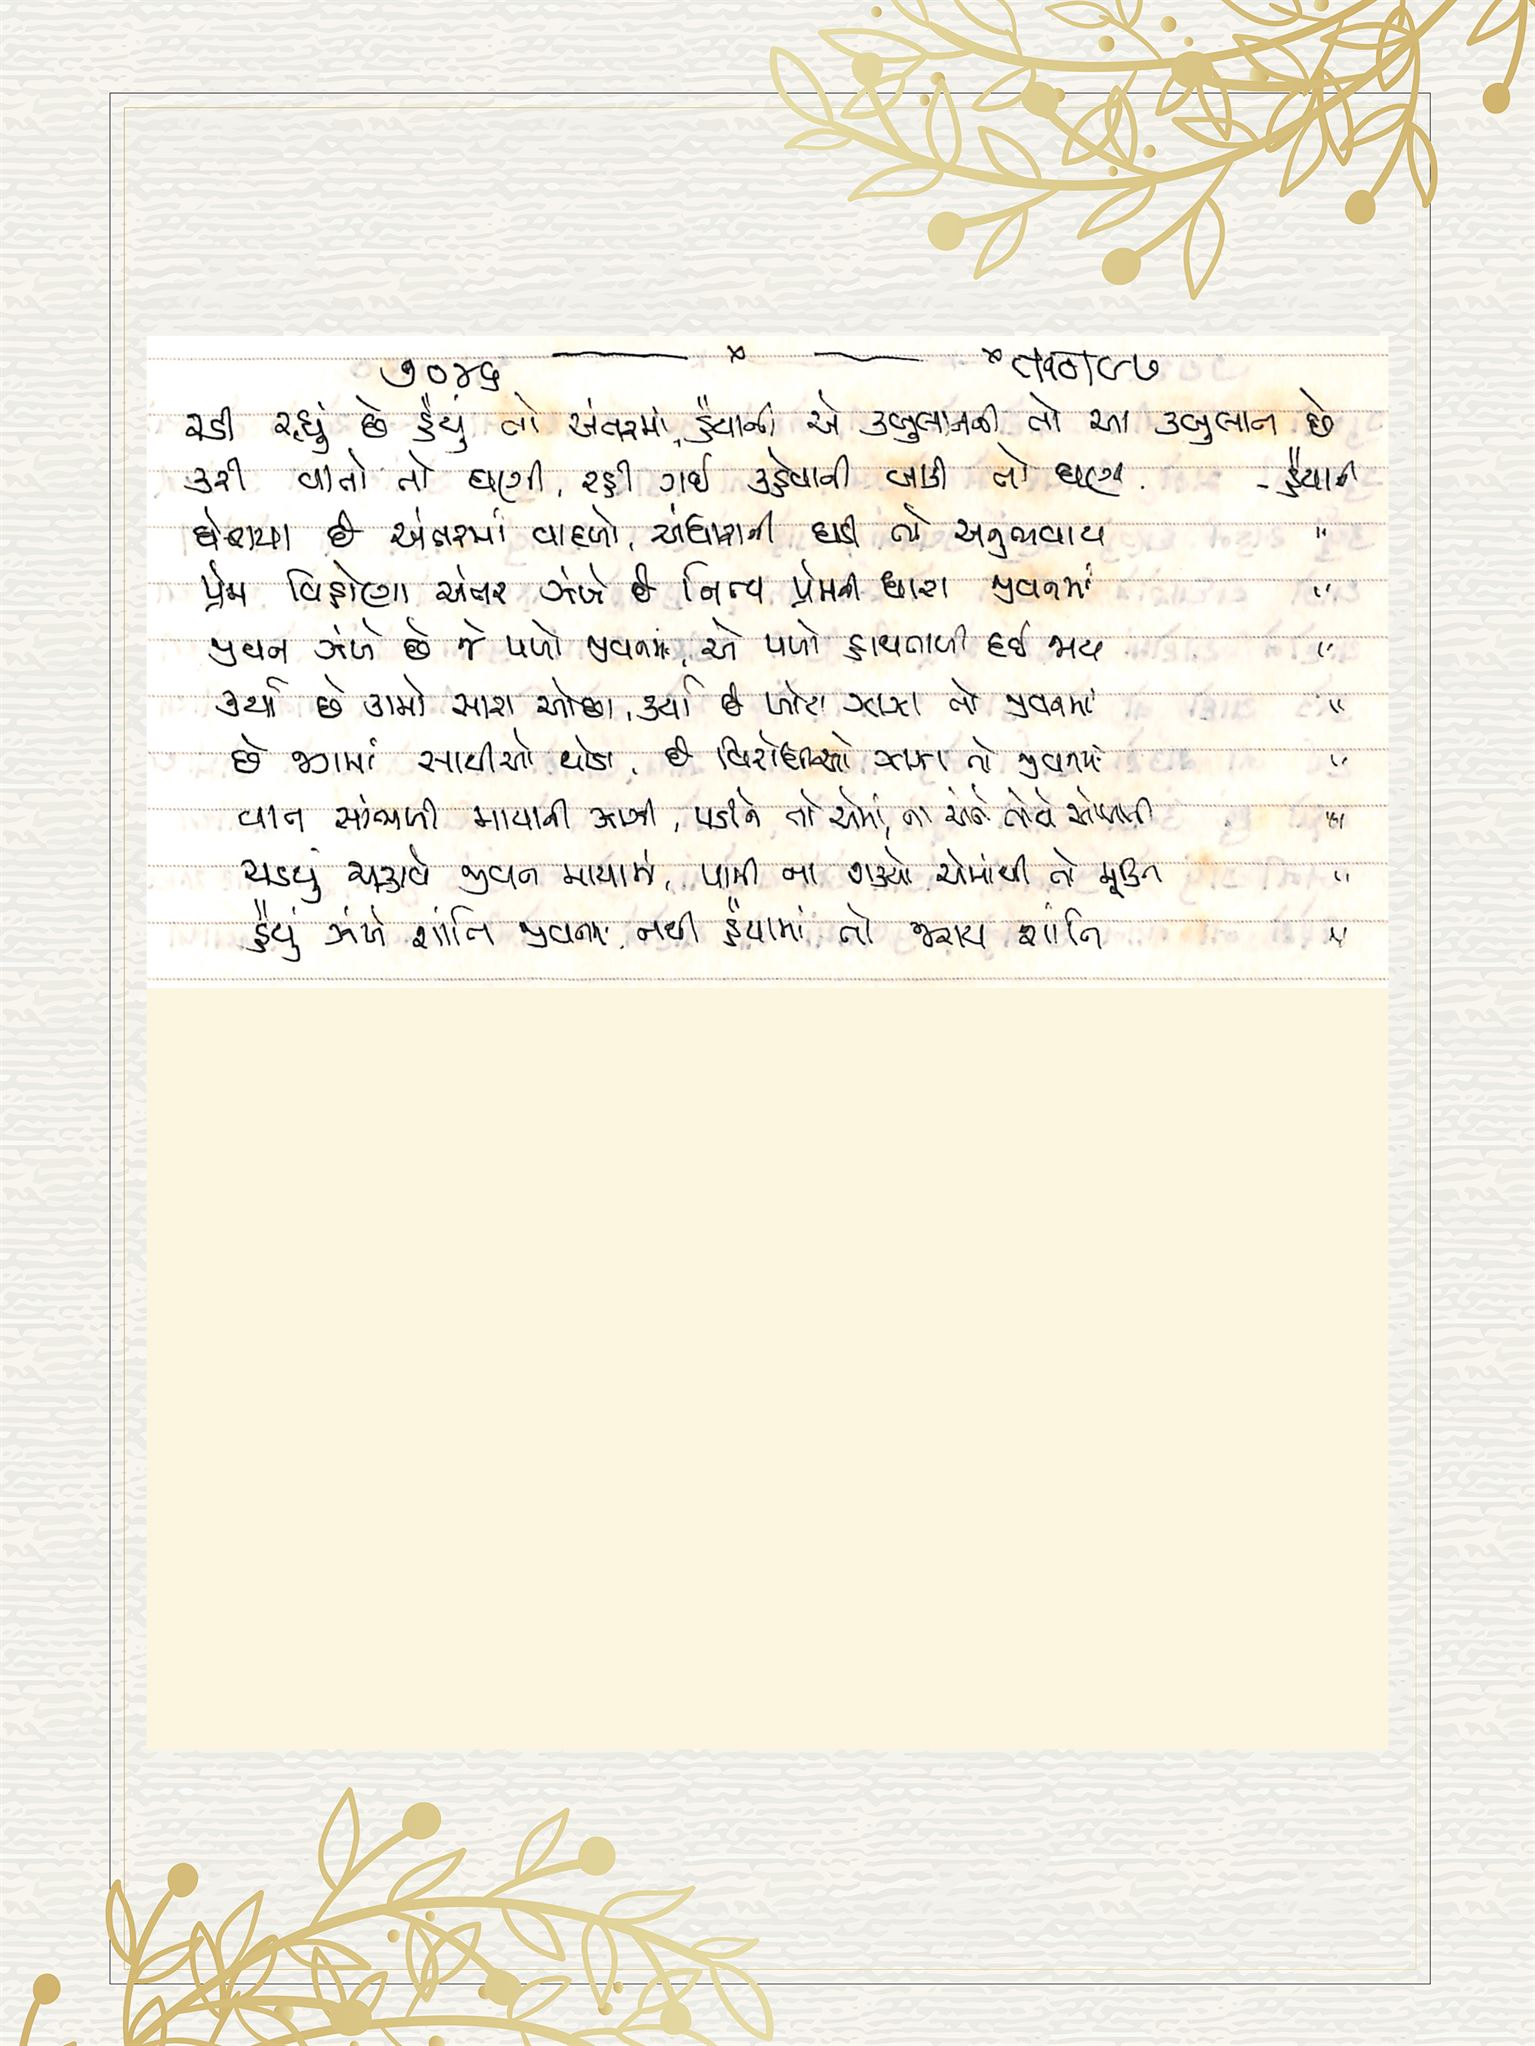 ૭૦૪૬ ——— x ———
રડી રહ્યું છે હૈયું તો અંતરમાં, હૈયાની એ કબુલાતની તો આ કબુલાત છે
કરી વાતો તો ઘણી, રહી ગઈ કહેવાની બાકી તો ઘણી. - હૈયાની
ઘેરાયા છે અંતરમાં વાદળો, અંધારાની ઘડી તો અનુભવાય "
પ્રેમ વિહોણા અંતર ઝંખે છે નિત્ય પ્રેમની ધારા જીવનમાં "
જીવન ઝંખે છે જે પળો જીવનમાં, એ પળો હાથતાળી દઈ જાય "
કર્યા છે કામો સારા ઓછા, કર્યા છે ખોટા ઝાઝા તો જીવનમાં "
છે જગમાં સાથીઓ થોડા, છે વિરોધીઓ ઝાઝા તો જીવનમાં "
વાત સાંભળી માયાની ઝાઝી, પડીને તો એમાં, ના અંતે તોયે "
ચડયું ચકરાવે જીવન માયામાં, પામી ના શક્યો એમાંથી તો મૂક્તિ "
હૈયું ઝંખે શાંતિ જીવનમાં, નથી હૈયામાં તો જરાય શાંતિ "